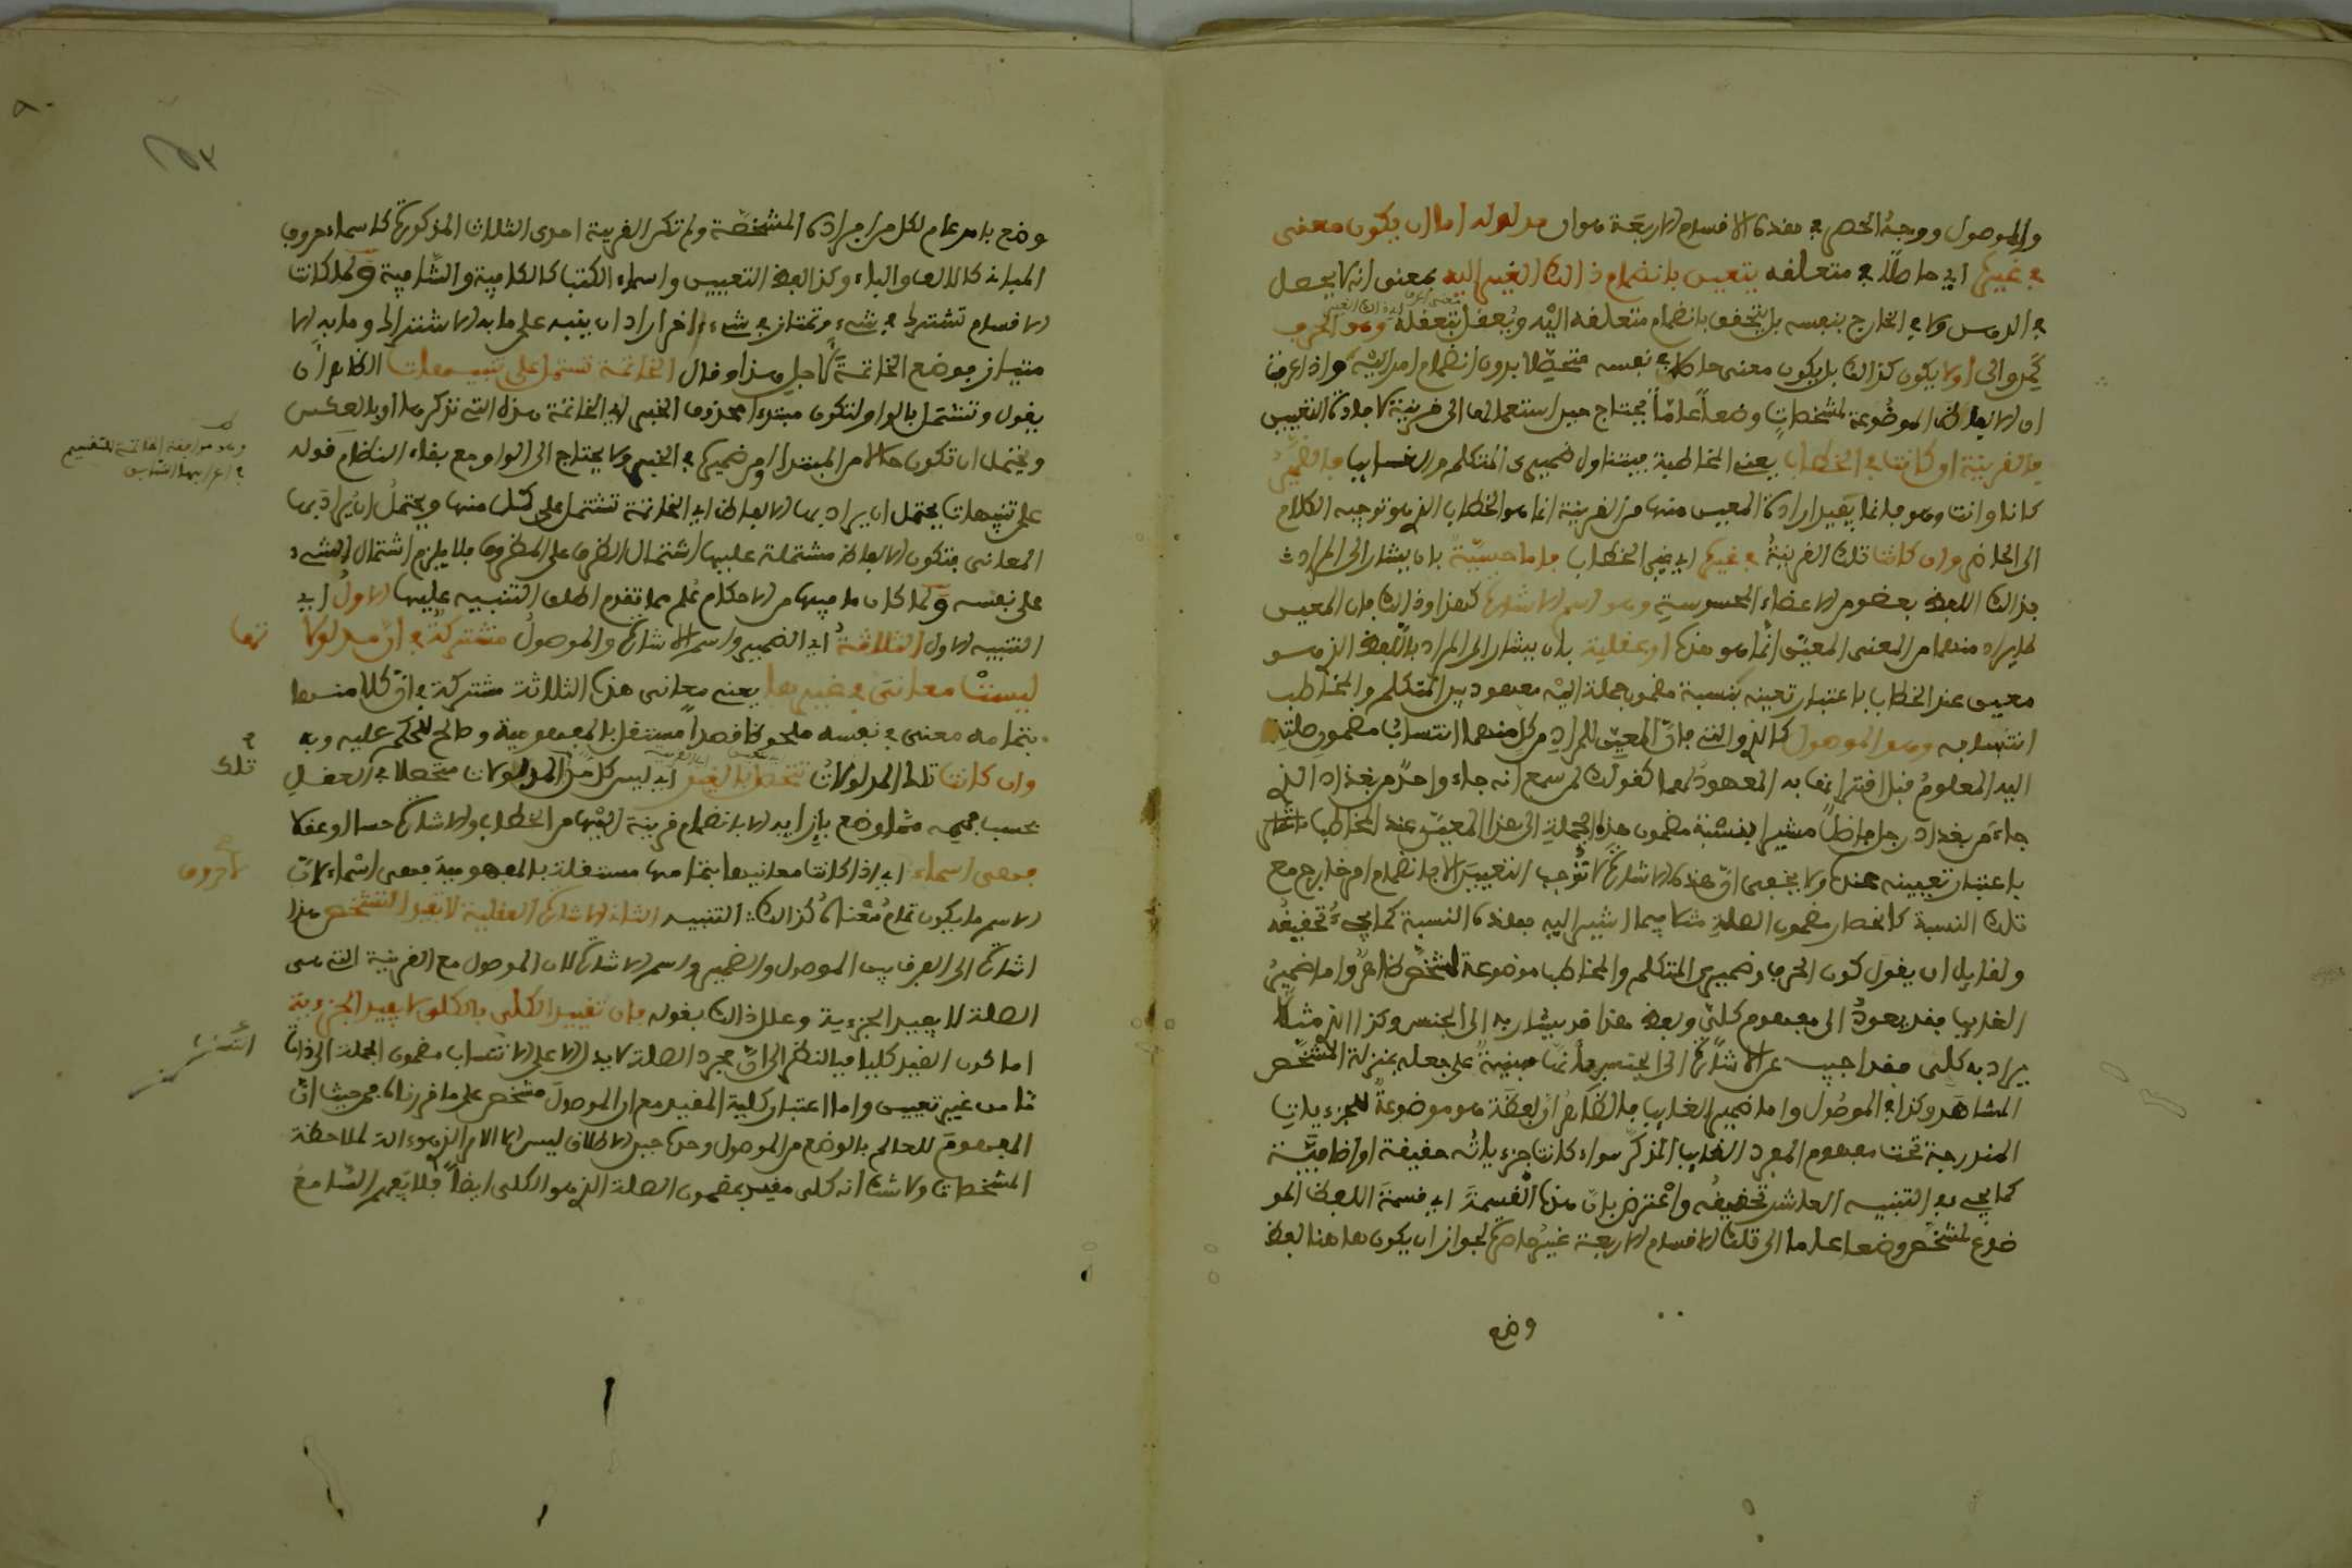 والموصول ووجه الحصر في هذه الاقسام الاربعة هو ان مدلوله اما ان يكون معنى
في غيره اي حاصلا في متعلقه يتعين بانضمام ذلك الغير اليه بمعنى انه لا يحصل
في الذهن ولا في الخارج بنفسه بل يتحقق بانضمام متعلقه اليه ويعقل بتعقله وهو الحرف
كمن والى اولا يكون كذلك بل يكون معنى حاصلا في نفسه متحصلا بدون انضمام امر اليه واذا عرفت
ان الالفاظ الموضوعة لمشخصات وضعا عاما يحتاج حين استعمالها الى قرينة لافادة التعيين
فالقرينة ان كانت في الخطاب يعني المخاطبة فيتناول ضميري المتكلم والغائب فالضمير
كانا وانت وهو فانما يفيد ارادة المعين منها من القرينة انما هو الخطاب الذي هو توجيه الكلام
الى الحاضر وان كانت تلك القرينة في غيره اي غير الخطاب فاما حسية بان يشار الى المراد
بذلك اللفظ بعضو من الاعضاء المحسوسة وهو اسم الاشارة كهذا وذلك فان المعين
لما يراد منهما من المعنى المعين انما هو هذه او عقلية بان يشار الى المراد باللفظ الذي هو
معين عند الخطاب باعتبار تعينه كنسبة مضمون جملة اليه معهود بين المتكلم والمخاطب
انتسابه وهو الموصول كالذي والتي فان المعين للمراد من كل منهما انتساب مضمون صلته
اليه المعلوم قبل اقترانها به المعهود لهما كقولك لمن سمع انه جاء واحد من بغداد الذي
جاء من بغداد رجل فاضل مشيرا بنسبة مضمون هذه الجملة الى هذا المعين عند المخاطب
باعتبار تعيينه عنده ولا يخفى ان هذه الاشارة لا توجب التعيين الا بانضمام امر خارج مع
تلك النسبة كانحصار مضمون الصلة مثلا فيما اشير اليه بهذه النسبة كما يجيء تحقيقه
ولقايل ان يقول كون الحرف وضميري المتكلم والمخاطب موضوعة لمشخص ظاهر واما ضمير
الغايب فقد يعود الى مفهوم كلي ولفظ هذا قد يشار به الى الجنس وكذا الذي مثلا
يراد به كلي فقد اجيب عن الاشارة الى الجنس بانها مبنية على جعله بمنزلة المشخص
المشاهد وكذا في الموصول واما ضمير الغايب فالظاهر ان لفظة هو موضوعة للجزءيات
المندرجة تحت مفهوم المفرد الغايب المذكر سواء كانت جزءياته حقيقة او اضافية
كما يجيء في التنبيه العاشر تحقيقه واعترض بان هذه القسمة اي قسمة اللفظ المو
ضوع لمشخص وضعا عاما الى تلك الاقسام الاربعة غير حاصرة لجواز ان يكون هاهنا لفظ
وضع
وضع بامر عام لكل من افراده المشخصة ولم تكن القرينة احدى الثلاث المذكورة كاسماء حروف
المباني كالالف والباء وكذا لفظ التعيين واسماء الكتب كالكافية والشافية ولما كانت
الاقسام تشترك في شيء وتمتاز في شيء اخر اراد ان ينبه على ما به الاشتراك وما به الا
متياز فوضع الخاتمة لاجل هذا وقال الخاتمة تشتمل على تنبيهات الظاهر ان
يقول وتشتمل بالواو لتكون مبتدءا محذوف الخبر اي الخاتمة هذه التي نذكرها او بالعكس
ويحتمل ان تكون حالا من المبتدا او من ضميره في الخبر ولا يحتاج الى الواو مع بقاء النظام قوله
على تنبيهات يحتمل ان يراد بها الالفاظ اي الخاتمة تشتمل على كل منها ويحتمل ان يراد بها
المعاني فتكون الالفاظ مشتملة عليها اشتمال الظرف على المظروف فلا يلزم اشتمال الشيء
على نفسه ولما كان ما فيها من الاحكام علم مما تقدم اطلق التنبيه عليها الاول اي
التنبيه الاول الثلاثة اي الضمير واسم الاشارة والموصول مشتركة في ان مدلولا تها
ليست معاني في غيرها يعني معاني هذه الثلاثة مشتركة في ان كلا منها
بتمامه معنى في نفسه ملحوظا قصدا مستقل بالمفهومية وصالح للحكم عليه وبه
وان كانت تلك المدلولات تتحصل بالغير اي ليس كل من المدلولات متحصلا في العقل
بحسب فهمه مما وضع بازايه الا بانضمام قرينة اليها من الخطاب والاشارة حسا او عقلا
فهي اسماء اي اذا كانت معانيها بتمامها مستقلة بالمفهومية فهي اسماء لان لا حروف
الاسم ما يكون تمام معناه كذلك التنبيه الثاني الاشارة العقلية لا تفيد التشخص هذا
اشارة الى الفرق بين الموصول والضمير واسم الاشارة لان الموصول مع القرينة التي هي
الصلة لا يفيد الجزءية وعلل ذلك بقوله فان تقييد الكلي بالكلي لا يفيد الجزءية
اما كون القيد كليا فبالنظر الى ان مجرد الصلة لا يدل الا على انتساب مضمون الجملة الى ذات
ما من غير تعيين واما اعتبار كلية المقيد مع ان الموصول مشخص على ما قررناه فمن حيث ان
المفهوم للعالم بالوضع من الموصول وحده حين الاطلاق ليس الا الامر الذي هو ءالة لملاحظة
المشخصات ولا شك انه كلي مقيد بمضمون الصلة الذي هو الكلي ايضا فلا يفهم السامع
وهو موافقة الخاتمة للتقسيم
تلك